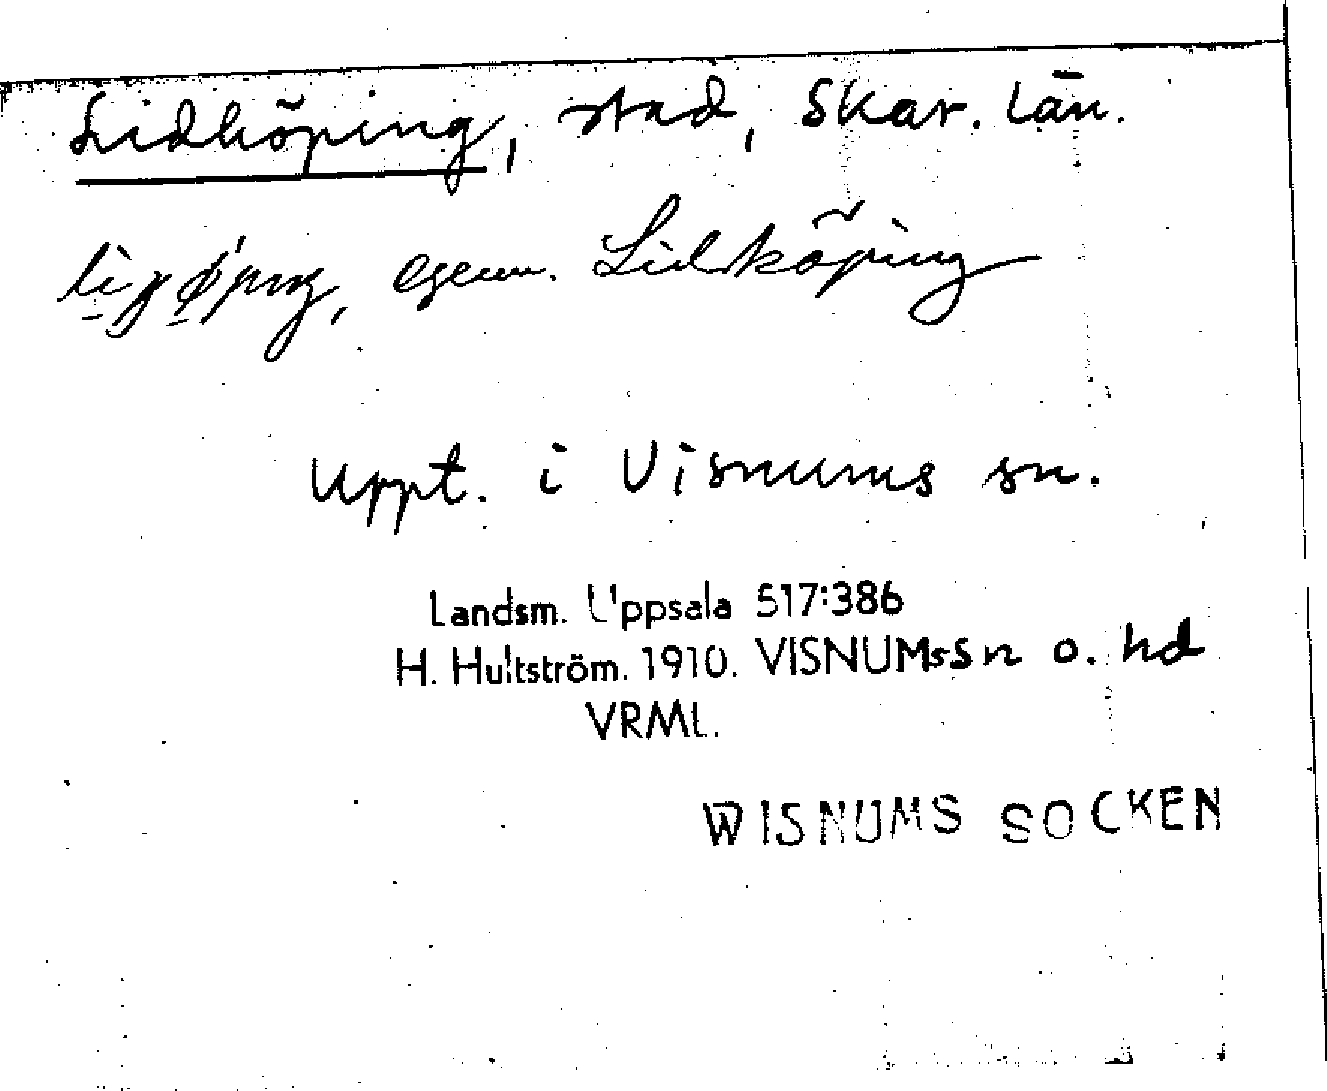 Lidköping, stad, Skar. län.
egenn. Lidköping
Uppt. i Visnums sn.
Landsm. Uppsala 517:386
H. Hultström. 1910. VISNUMs sn o. hd
VRML.
WISNUMS SOCKEN